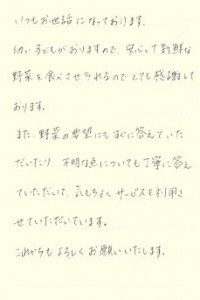 いつもお世話になっております。
幼い子どもがおりますので、安心して新鮮な
野菜を食べさせられるのでとても感謝して
おります。
また、野菜の希望にもすぐに答えていた
だいたり、不明な点についても丁寧に答え
ていただいて、気もちよくサービスを利用さ
せていただいています。
これからもよろしくお願いいたします。